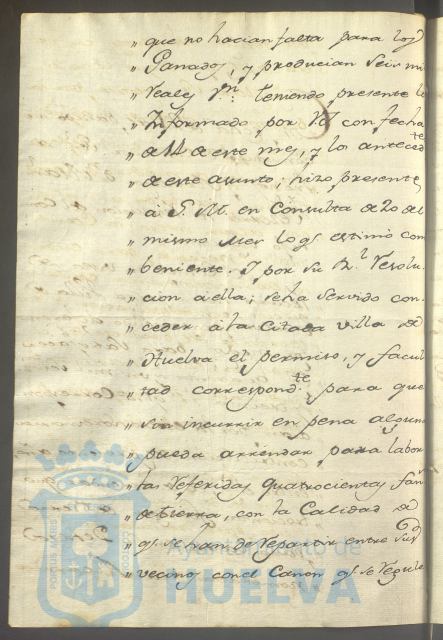 " que no hacian falta para los
" Ganados, y producian seis mil
" reales v.n: Teniendo presente lo
" Informado por V.S. con fecha
" de 14 de este mes, y los anteced.tes
" de este asunto; hizo presente
" á S. M. en Consulta de 20 del
" mismo Mes lo q.e estimó com
" beniente. Y por su R.l resolu
" cion a ella; se ha servido con
" ceder á la citada villa de
" Huelva el permiso, y facul
" tad correspond.te para que
" sin incurrir en pena alguna
" pueda arrendar para labor
" las referidas quatrocientas fan.
" de tierra, con la Calidad de
" q.e se han de repartir entre sus
" vecinos con el Canon q.e se regule
Ayuntamiento de
HUELVA